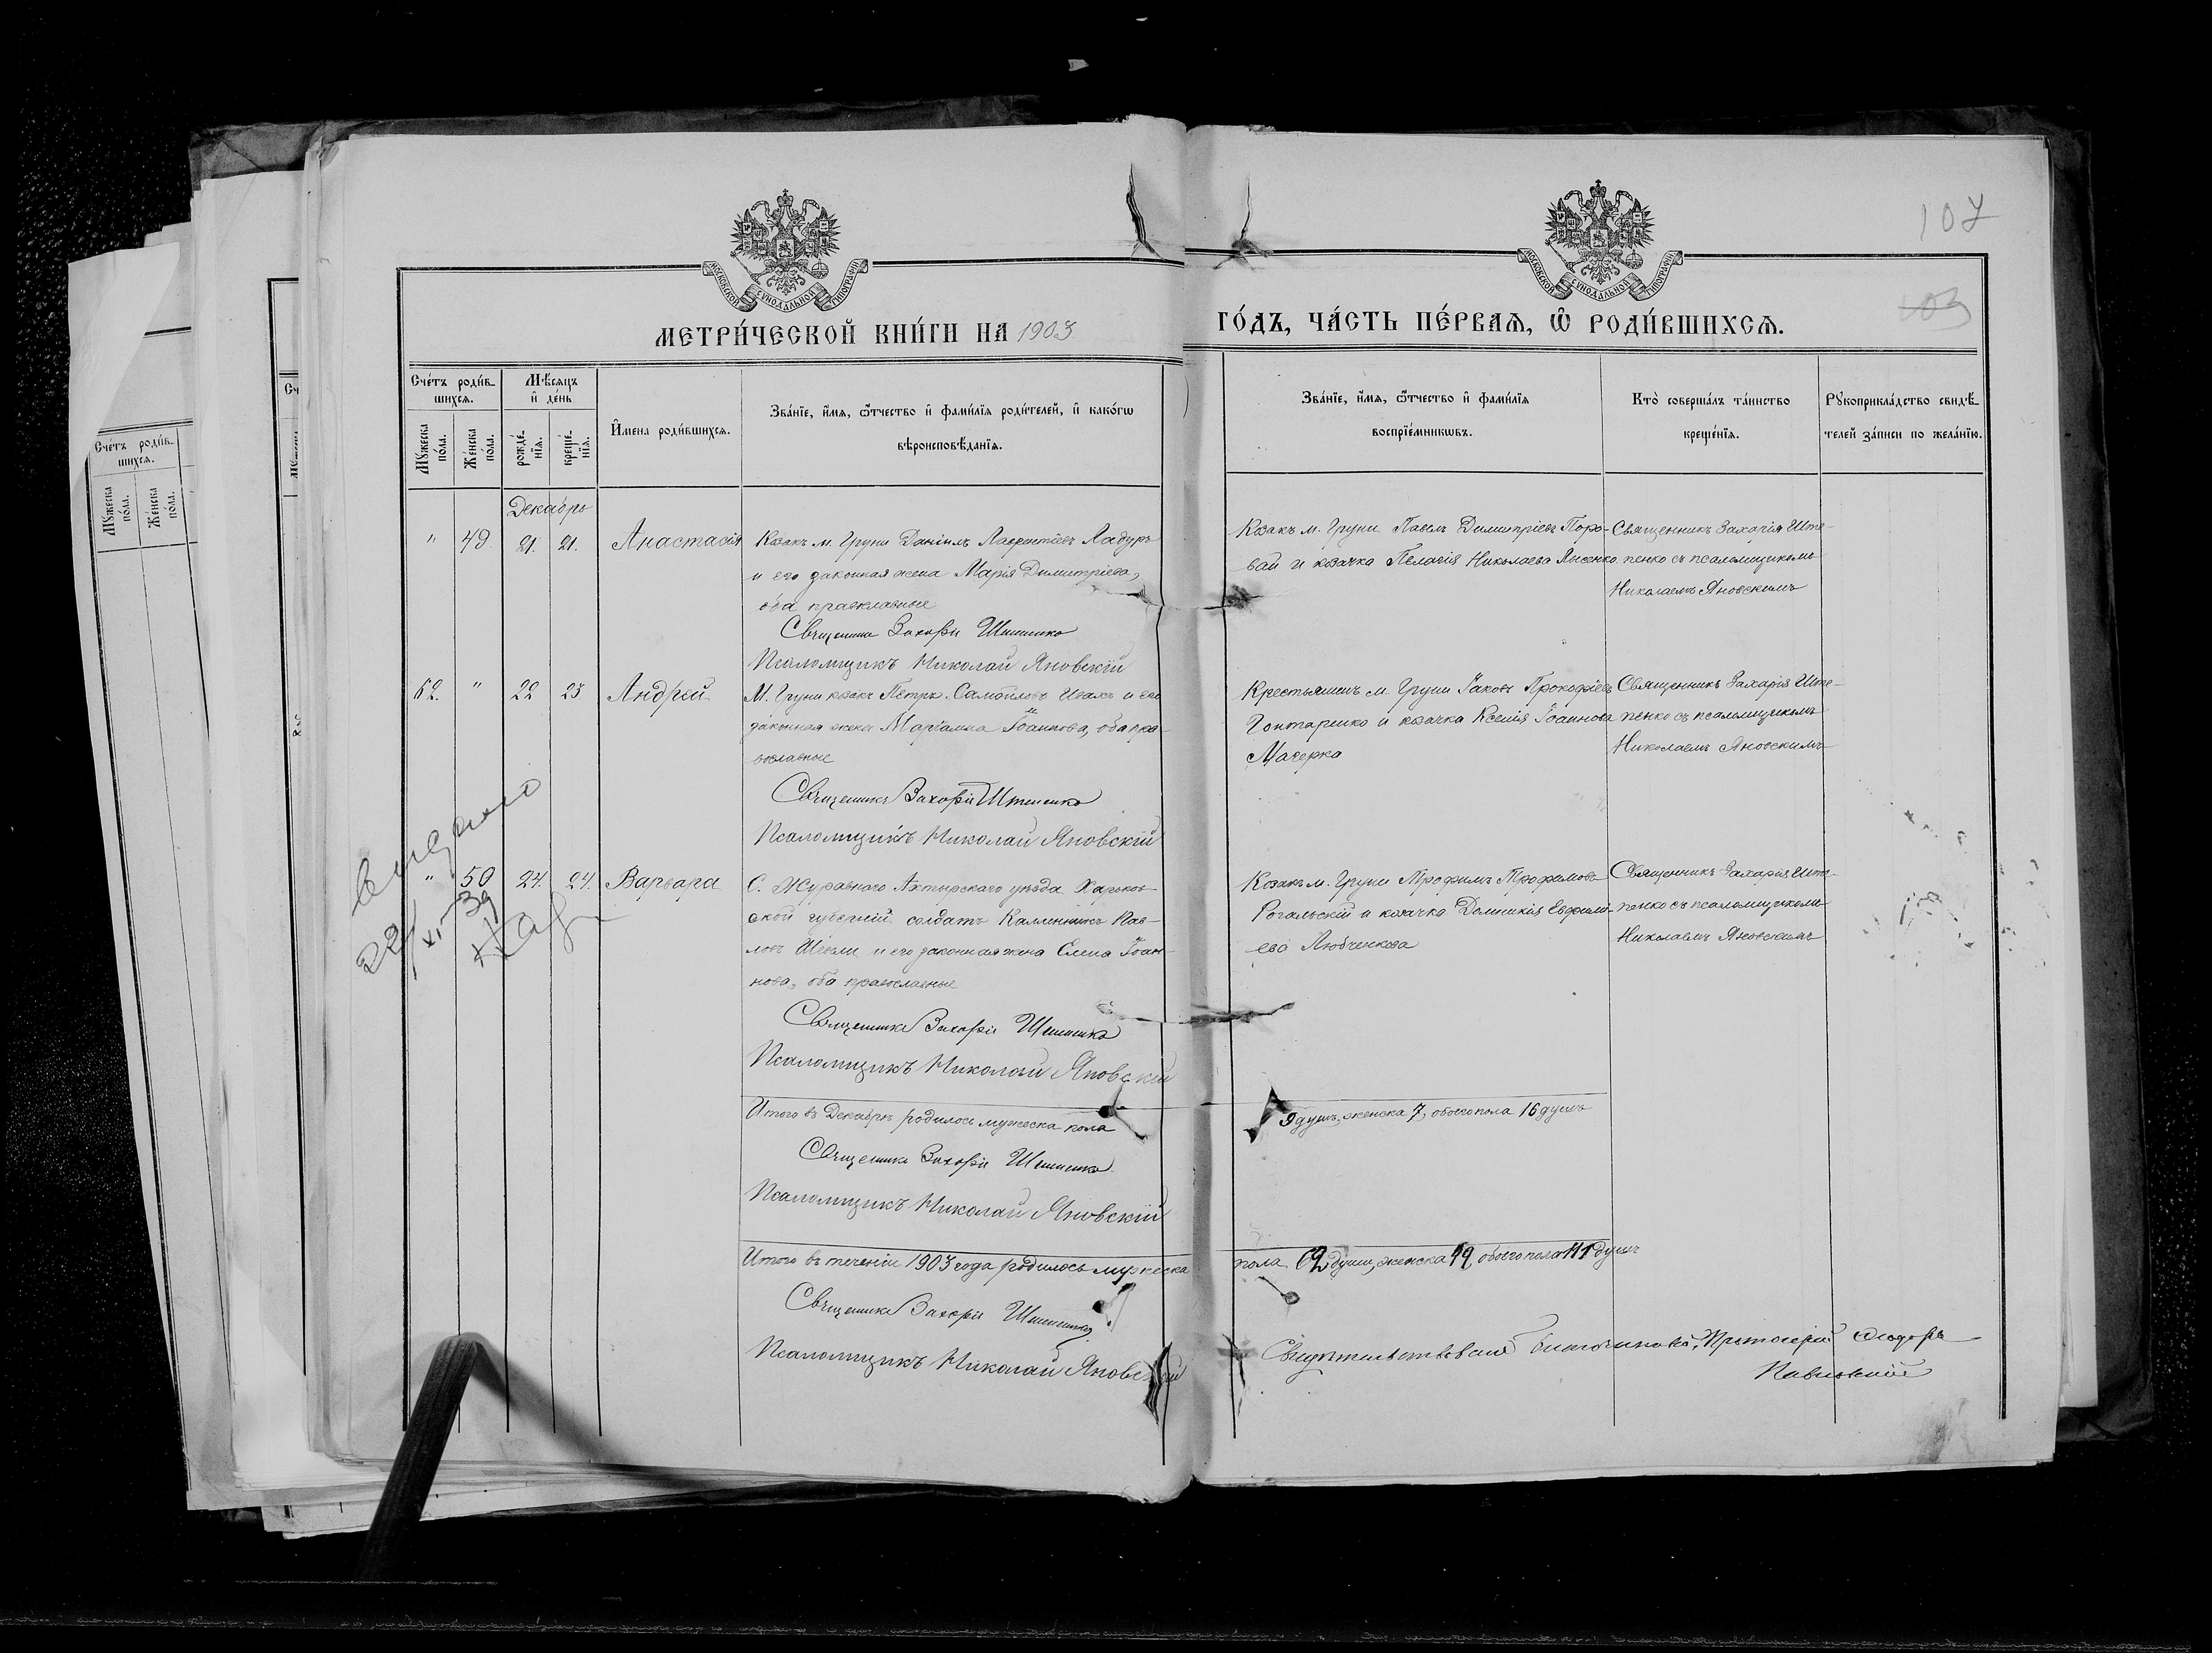 107
103
МОСКОВСКОЙ СѴНОДАЛЬНОЙ ТИПОГРАФІИ
МОСКОВСКОЙ СѴНОДАЛЬНОЙ ТИПОГРАФІИ
МЕТРИ́ЧЕСКОЙ КНИ́ГИ НА 1903
ГО́ДЪ, ЧА́СТЬ ПЕ́РВАЯ, Ѿ РОДИ́ВШИХСЯ.
Сче́тъ роди́в-
шихся.
Мꙋ́жеска по́ла.
Же́нска по́ла.
Мѣ́сяцъ и҆ де́нь
рожде́нїя.
креще́нїя.
И҆мена роди́вшихся.
Зва́нїе, и҆́мя, ѻ҆́тчество и҆ фами́лїя роди́телей, и҆ како́гѡ
вѣроисповѣ́данїя.
Зва́нїе, и҆́мя, ѻ҆́тчество и҆ фами́лїя
воспрїе́мникѡвъ.
Кто̀ соверша́лъ та́инство
креще́нїя.
Рꙋкоприкла́дство свидѣ́-
телей за́писи по жела́нїю.
Декабрь
" 49 21. 21. Анастасія
Козакъ м. Груни Даніилъ Лаврентіевъ Ладуръ
и его законная жена Марія Димитріева,
оба православные
Священникъ Захарія
Псаломщикъ Николай Яновскій
Козакъ м. Груни Павелъ Димитріевъ Поро-
вай и козачка Пелагія Николаева Лысенко
Священникъ ЗахаріяШте-
пенко съ псаломщикомъ
Николаемъ Яновскимъ
62. " 22 23 Андрей
М. Груни козакъ Петръ Самойловъ и его
законная жена Маріамна Іоаннова, оба пра-
вославные
Священникъ Захарій Штепенко
Псаломщикъ Николай Яновскій
Крестьянинъ м. Груни Іаковъ Прокофіевъ
Гонтаренко и козачка Ксенія Іоаннова
Мачерка
Священникъ ЗахаріяШте-
пенко съ псаломщикомъ
Николаемъ Яновскимъ
видано
22/XI-39
" 50 24. 24. Варвара
С. Журавнаго Ахтырскаго уѣзда Харьков-
ской губерніи солдатъ Каллиникъ Пав-
ловъ и его законная жена Елена Іоан-
нова, оба православные
Священникъ Захарій Штепенко
Псаломщикъ Николай Яновскій
Козакъ м. Груни Трофимъ Трофимовъ
Рогальскій и козачка Домникія Евфими-
ева Любченкова
Священникъ ЗахаріяШте-
пенко съ псаломщикомъ
Николаемъ Яновскимъ
Итого въ Декабрѣ родилось мужеска пола
9 душъ, женска 7, обоего пола 16 душъ
Священникъ Захарій Штепенко
Псаломщикъ Николай Яновскій
Итого въ теченіи 1903 года родилось мужеска
пола 62 души, женска обоего пола душъ
Священникъ Захарій Штепенко
Псаломщикъ Николай Яновскій
Свидѣтельствовалъ благочинный, Протоіерей Ѳеодоръ
Павловскій
Сче́тъ роди́в-
шихся.
Мꙋ́жеска по́ла.
Же́нска по́ла.